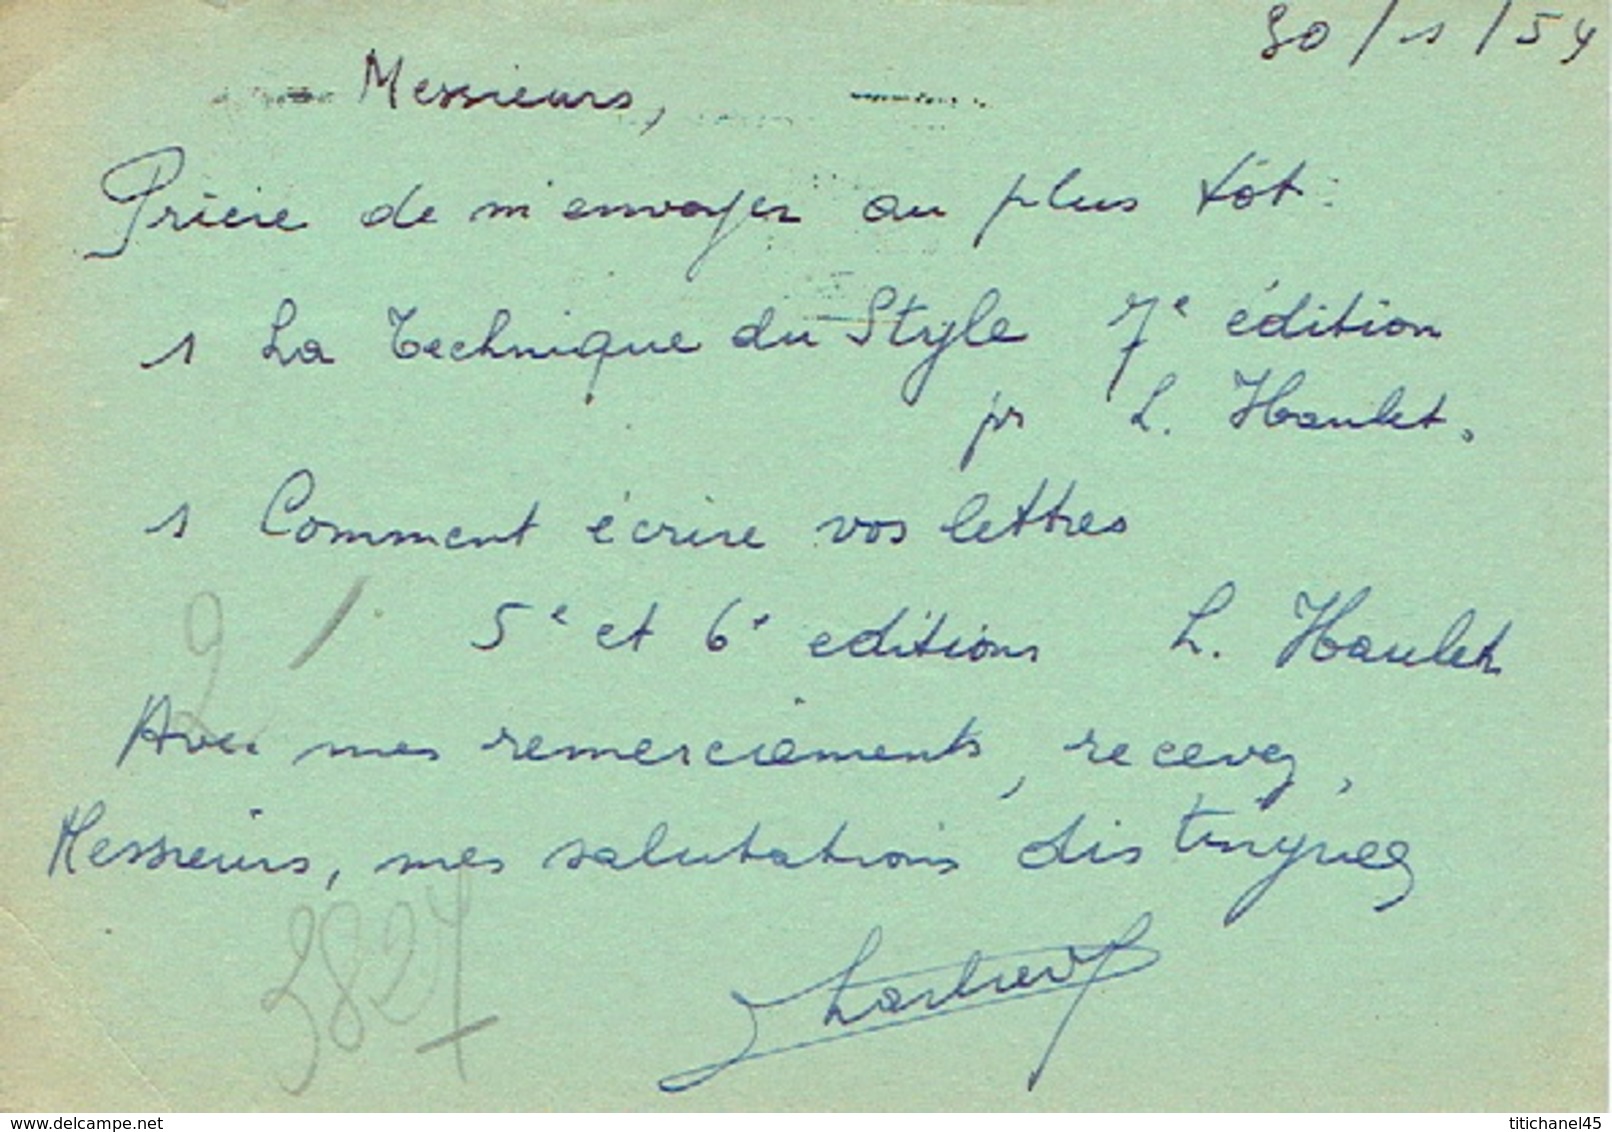 30/1/54
Messieurs,
Prière de m'envoyer au plus tôt :
1 La Technique du Style 7e édition
pr L. Haulet.
1 Comment écrire vos lettres
5e et 6e editions L. Haulet
2 /
Avec mes remerciements, recevez,
Messieurs, mes salutations distinguées
3827
delcampe.net
titichanel45